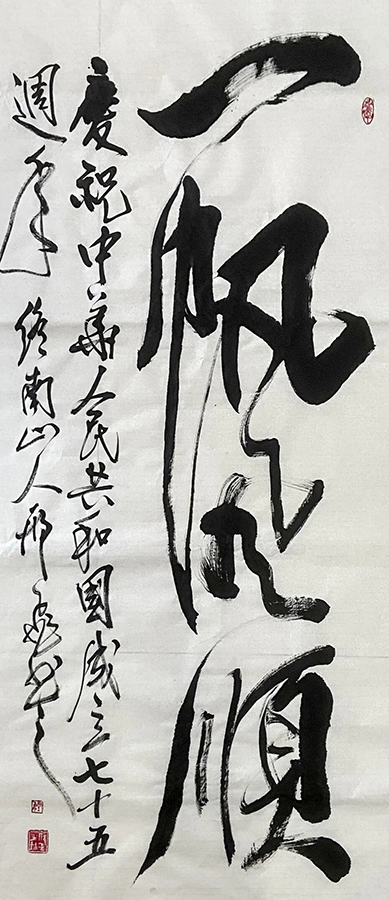 一帆风顺
慶祝中華人民共和國成立七十五
週年 終南山人邢